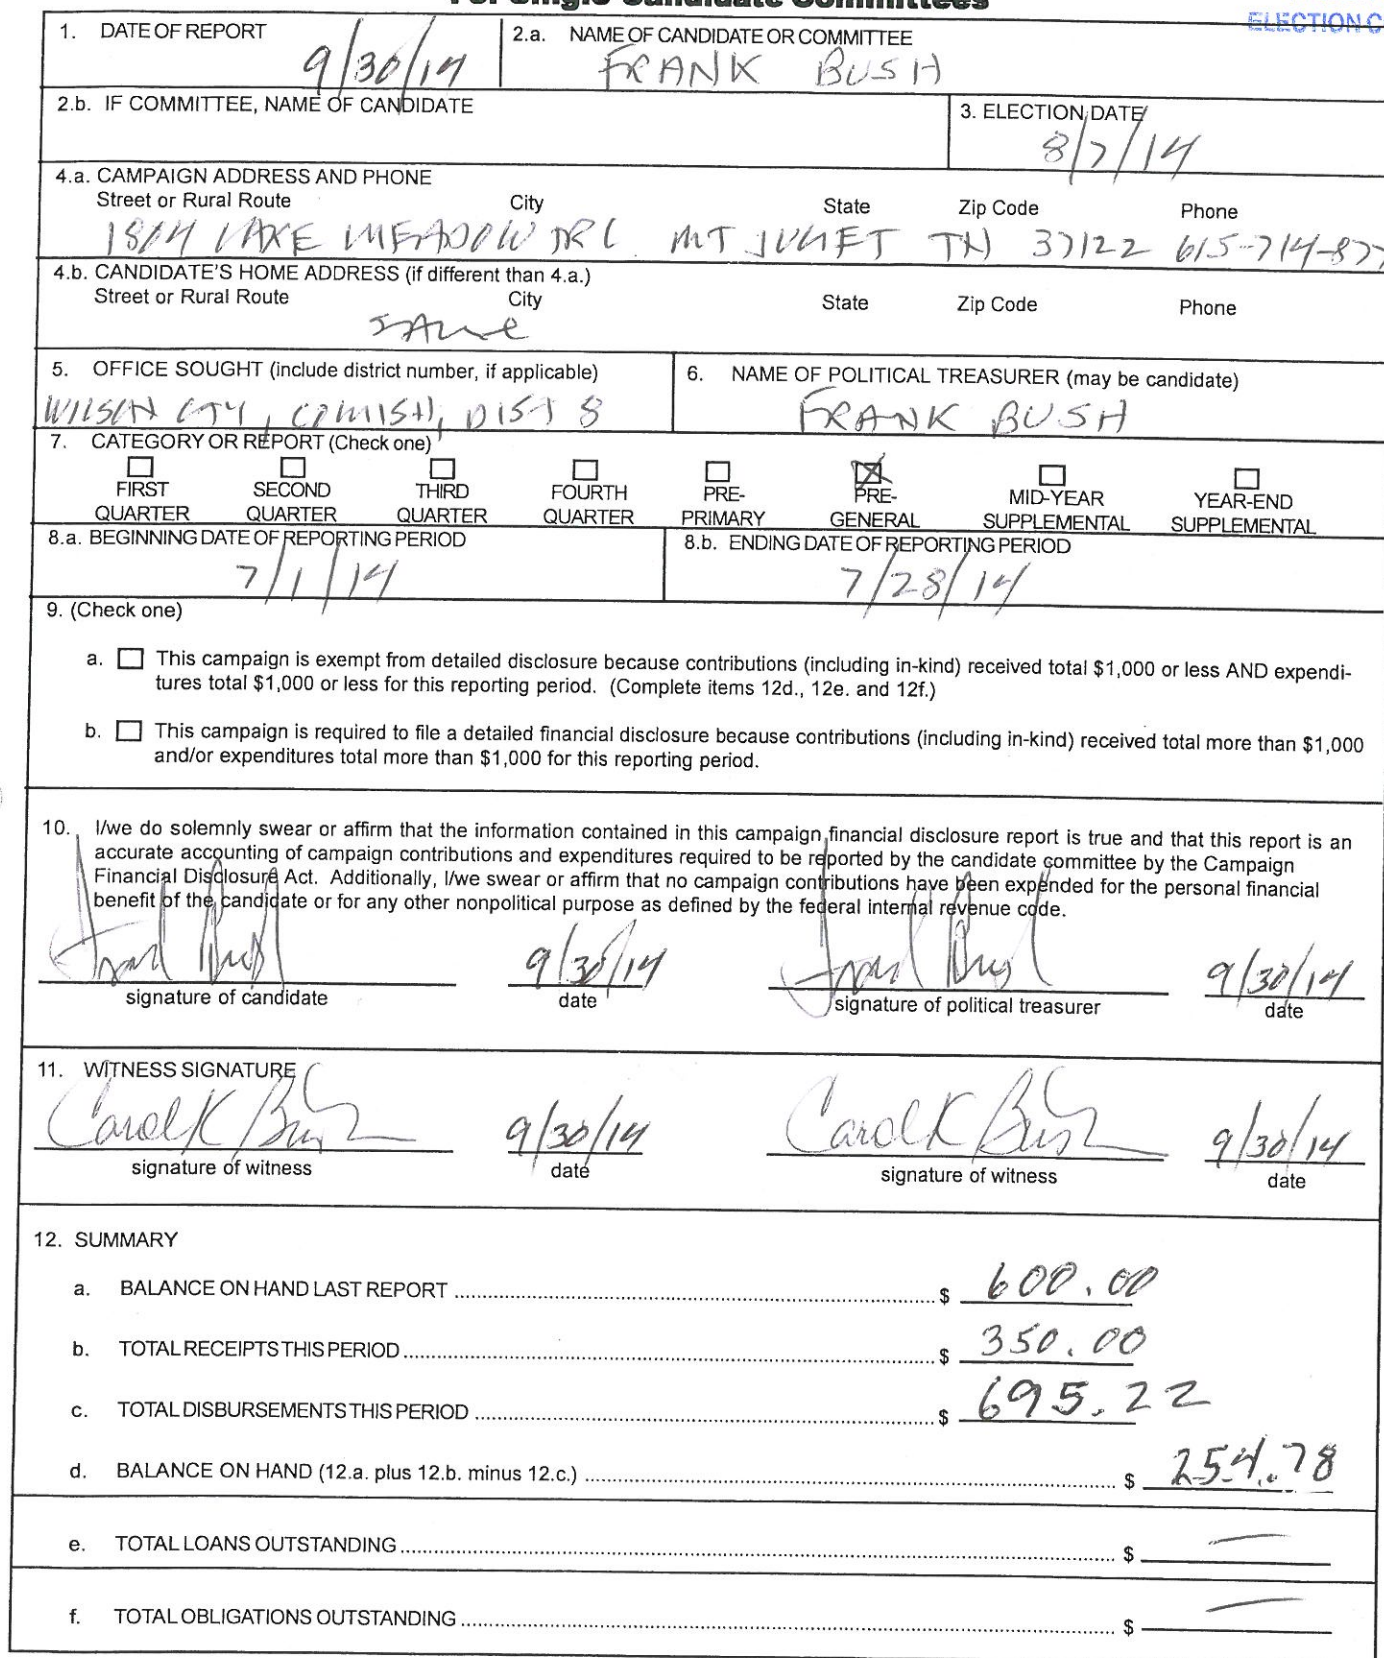 For Single Candidate Committees
ELECTION C
1. DATE OF REPORT
9/30/14
2.a. NAME OF CANDIDATE OR COMMITTEE
FRANK BUSH
2.b. IF COMMITTEE, NAME OF CANDIDATE
3. ELECTION DATE
8/7/14
4.a. CAMPAIGN ADDRESS AND PHONE
Street or Rural Route City State Zip Code Phone
LAKE MEADOW MT JULIET TN 37122 615-714-877
4.b. CANDIDATE'S HOME ADDRESS (if different than 4.a.)
Street or Rural Route City State Zip Code Phone
SAME
5. OFFICE SOUGHT (include district number, if applicable)
WILSON CTY, COMISH, DIST 8
6. NAME OF POLITICAL TREASURER (may be candidate)
FRANK BUSH
7. CATEGORY OR REPORT (Check one)
FIRST QUARTER
SECOND QUARTER
THIRD QUARTER
FOURTH QUARTER
PRE-PRIMARY
PRE-GENERAL
MID-YEAR SUPPLEMENTAL
YEAR-END SUPPLEMENTAL
8.a. BEGINNING DATE OF REPORTING PERIOD
7/1/14
8.b. ENDING DATE OF REPORTING PERIOD
7/28/14
9. (Check one)
a. This campaign is exempt from detailed disclosure because contributions (including in-kind) received total $1,000 or less AND expendi-
tures total $1,000 or less for this reporting period. (Complete items 12d., 12e. and 12f.)
b. This campaign is required to file a detailed financial disclosure because contributions (including in-kind) received total more than $1,000
and/or expenditures total more than $1,000 for this reporting period.
10. I/we do solemnly swear or affirm that the information contained in this campaign financial disclosure report is true and that this report is an
accurate accounting of campaign contributions and expenditures required to be reported by the candidate committee by the Campaign
Financial Disclosure Act. Additionally, I/we swear or affirm that no campaign contributions have been expended for the personal financial
benefit of the candidate or for any other nonpolitical purpose as defined by the federal internal revenue code.
Frank Bush 9/30/14 Frank Bush 9/30/14
signature of candidate date signature of political treasurer date
11. WITNESS SIGNATURE
Carol K Bush 9/30/14 Carol K Bush 9/30/14
signature of witness date signature of witness date
12. SUMMARY
a. BALANCE ON HAND LAST REPORT $ 600.00
b. TOTAL RECEIPTS THIS PERIOD $ 350.00
c. TOTAL DISBURSEMENTS THIS PERIOD $ 695.22
d. BALANCE ON HAND (12.a. plus 12.b. minus 12.c.) $ 254.78
e. TOTAL LOANS OUTSTANDING $ —
f. TOTAL OBLIGATIONS OUTSTANDING $ —